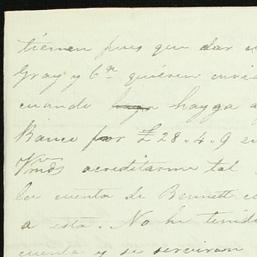 tienen pues que dar
Gray y Cª quieren envia
cuando hayga a
Banco por £28.4.9 en
Vmds acreditarme tal
la cuenta de Bennett
a esta. No he tenid
cuenta y se serviran